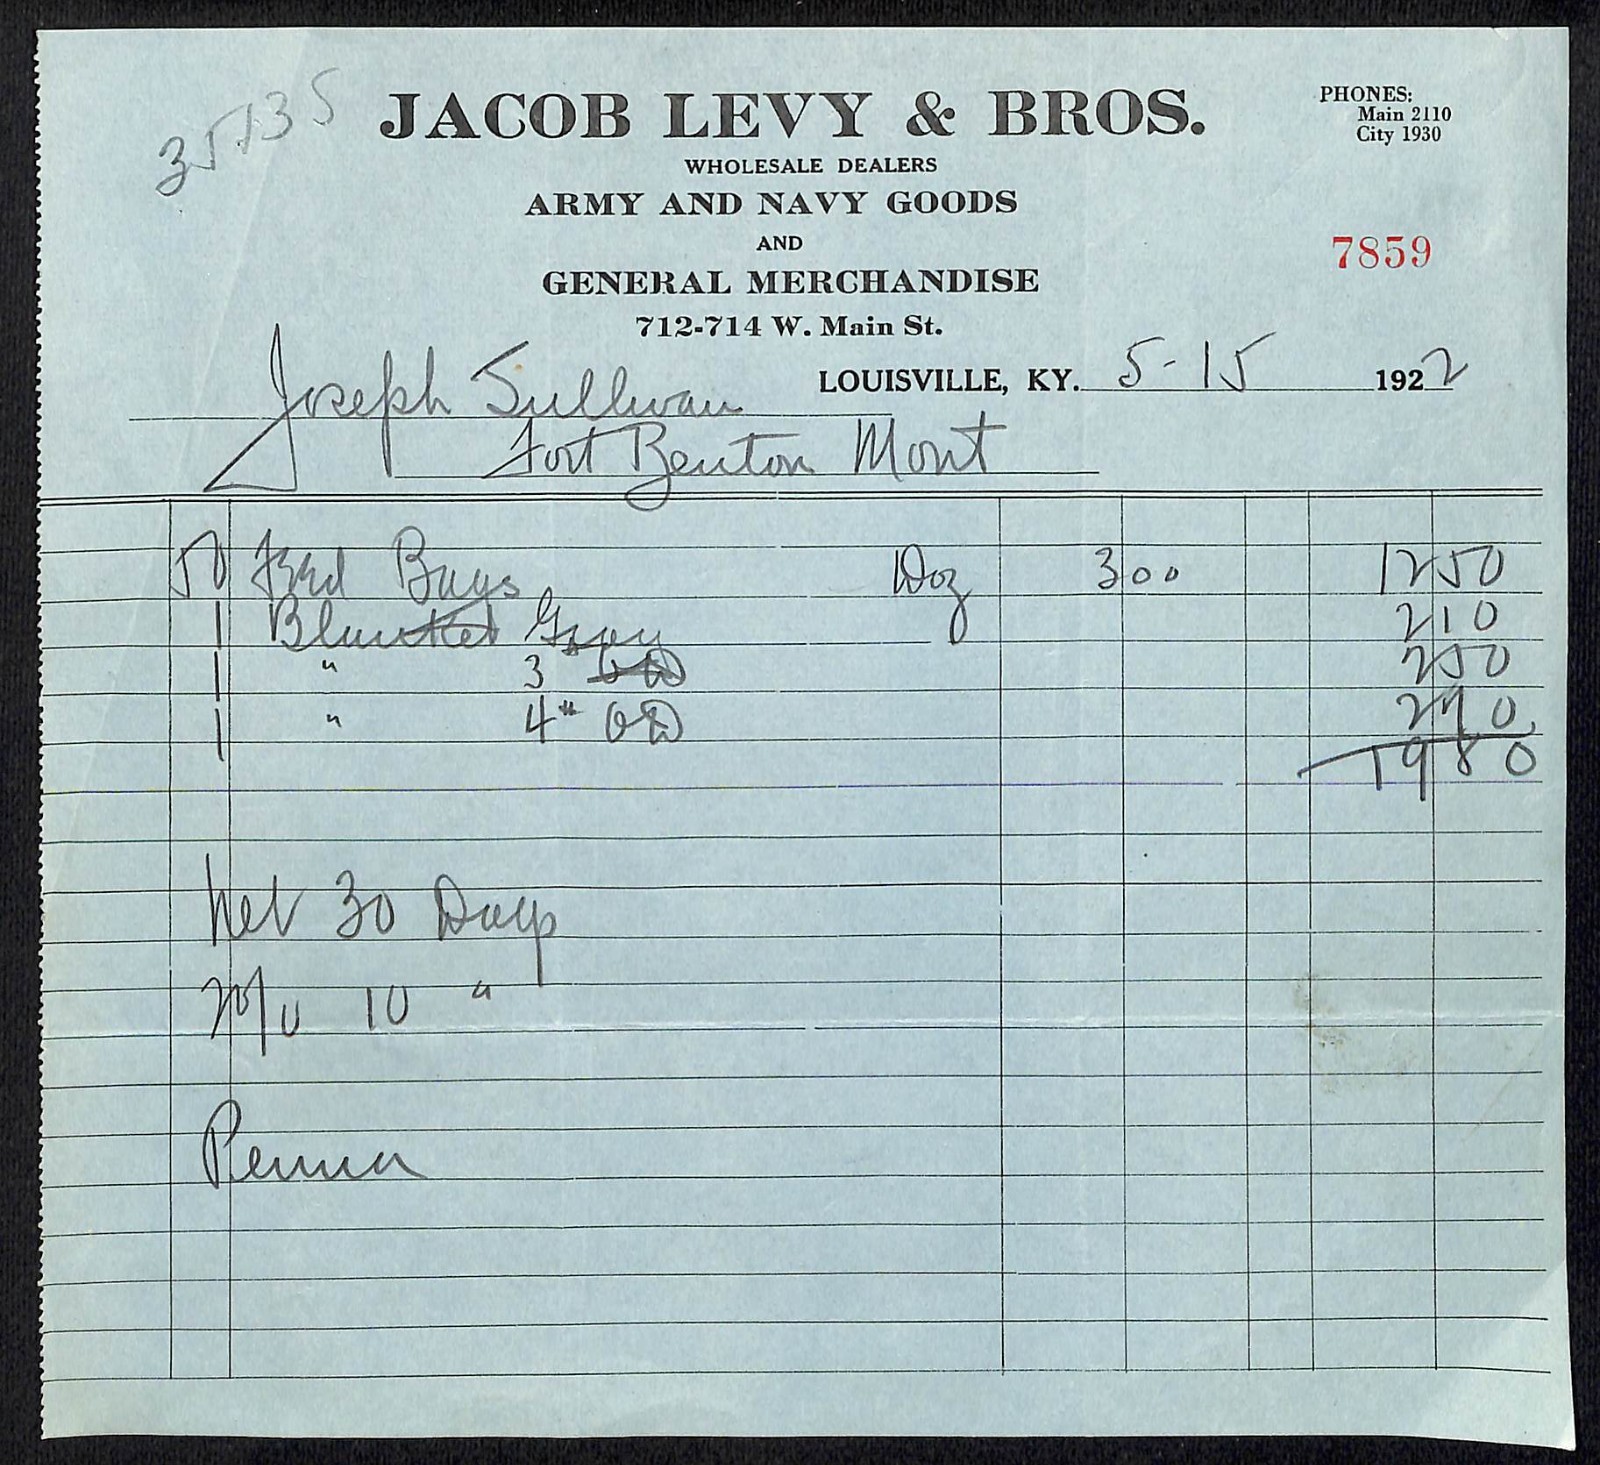 35135
JACOB LEVY & BROS.
PHONES:
Main 2110
City 1930
WHOLESALE DEALERS
ARMY AND NAVY GOODS
AND
GENERAL MERCHANDISE
7859
712-714 W. Main St.
LOUISVILLE, KY. 5-15 1922
Joseph Sullivan
Fort Benton Mont
50 Feed Bags Doz 300 1250
1 Blanket Grey 210
1 " 3 OD 250
1 " 4# OD 270
1980
Net 30 Days
2% 10 "